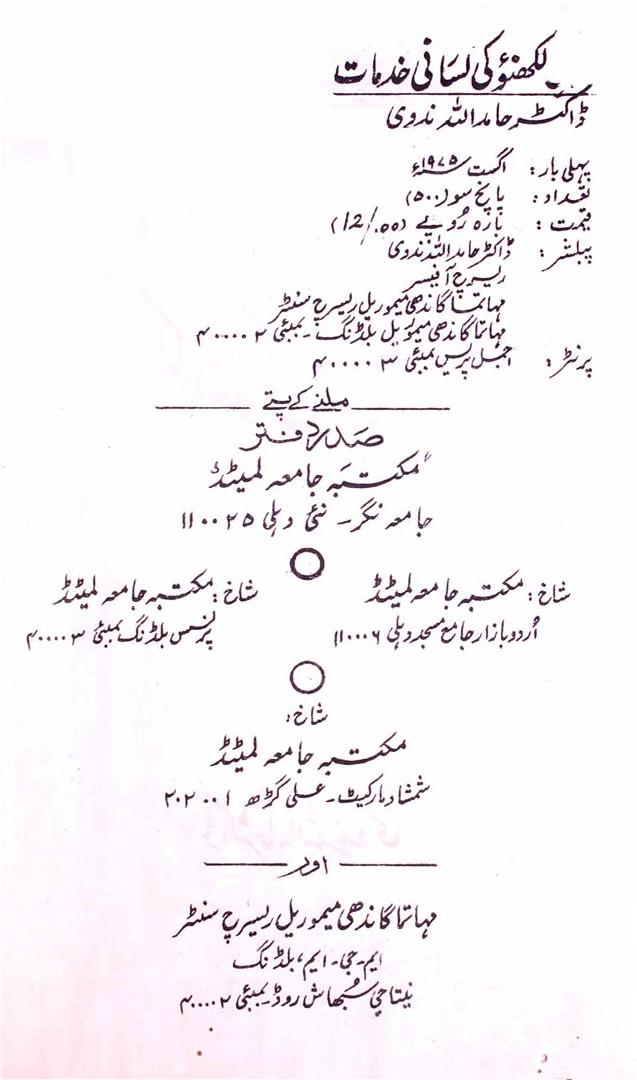 لکھنؤ کی لسانی خدمات
ڈاکٹر حامد اللہ ندوی
پہلی بار : اگست ۱۹۷۵ء
تعداد : پانچ سو (۵۰۰)
قیمت : بارہ رُوپے (12/.00)
پبلشر : ڈاکٹر حامد اللہ ندوی
ریسرچ آفیسر
مہاتما گاندھی میموریل ریسرچ سنٹر
مہاتما گاندھی میموریل بلڈنگ ۔ بمبئی ۴۰۰۰۰۲
پرنٹر : اجمل پریس بمبئی ۴۰۰۰۰۳
ملنے کے پتے
صدر دفتر
مکتبہ جامعہ لمیٹڈ
جامعہ نگر ۔ نئی دہلی ۱۱۰۰۲۵
شاخ : مکتبہ جامعہ لمیٹڈ
اُردو بازار جامع مسجد دہلی ۱۱۰۰۰۶
شاخ : مکتبہ جامعہ لمیٹڈ
پرنسس بلڈنگ بمبئی ۴۰۰۰۰۳
شاخ :
مکتبہ جامعہ لمیٹڈ
شمشاد مارکیٹ ۔ علی گڑھ ۲۰۲۰۰۱
اور
مہاتما گاندھی میموریل ریسرچ سنٹر
ایم ۔ جی ۔ ایم، بلڈنگ
نیتاجی سُبھاش روڈ بمبئی ۴۰۰۰۰۲